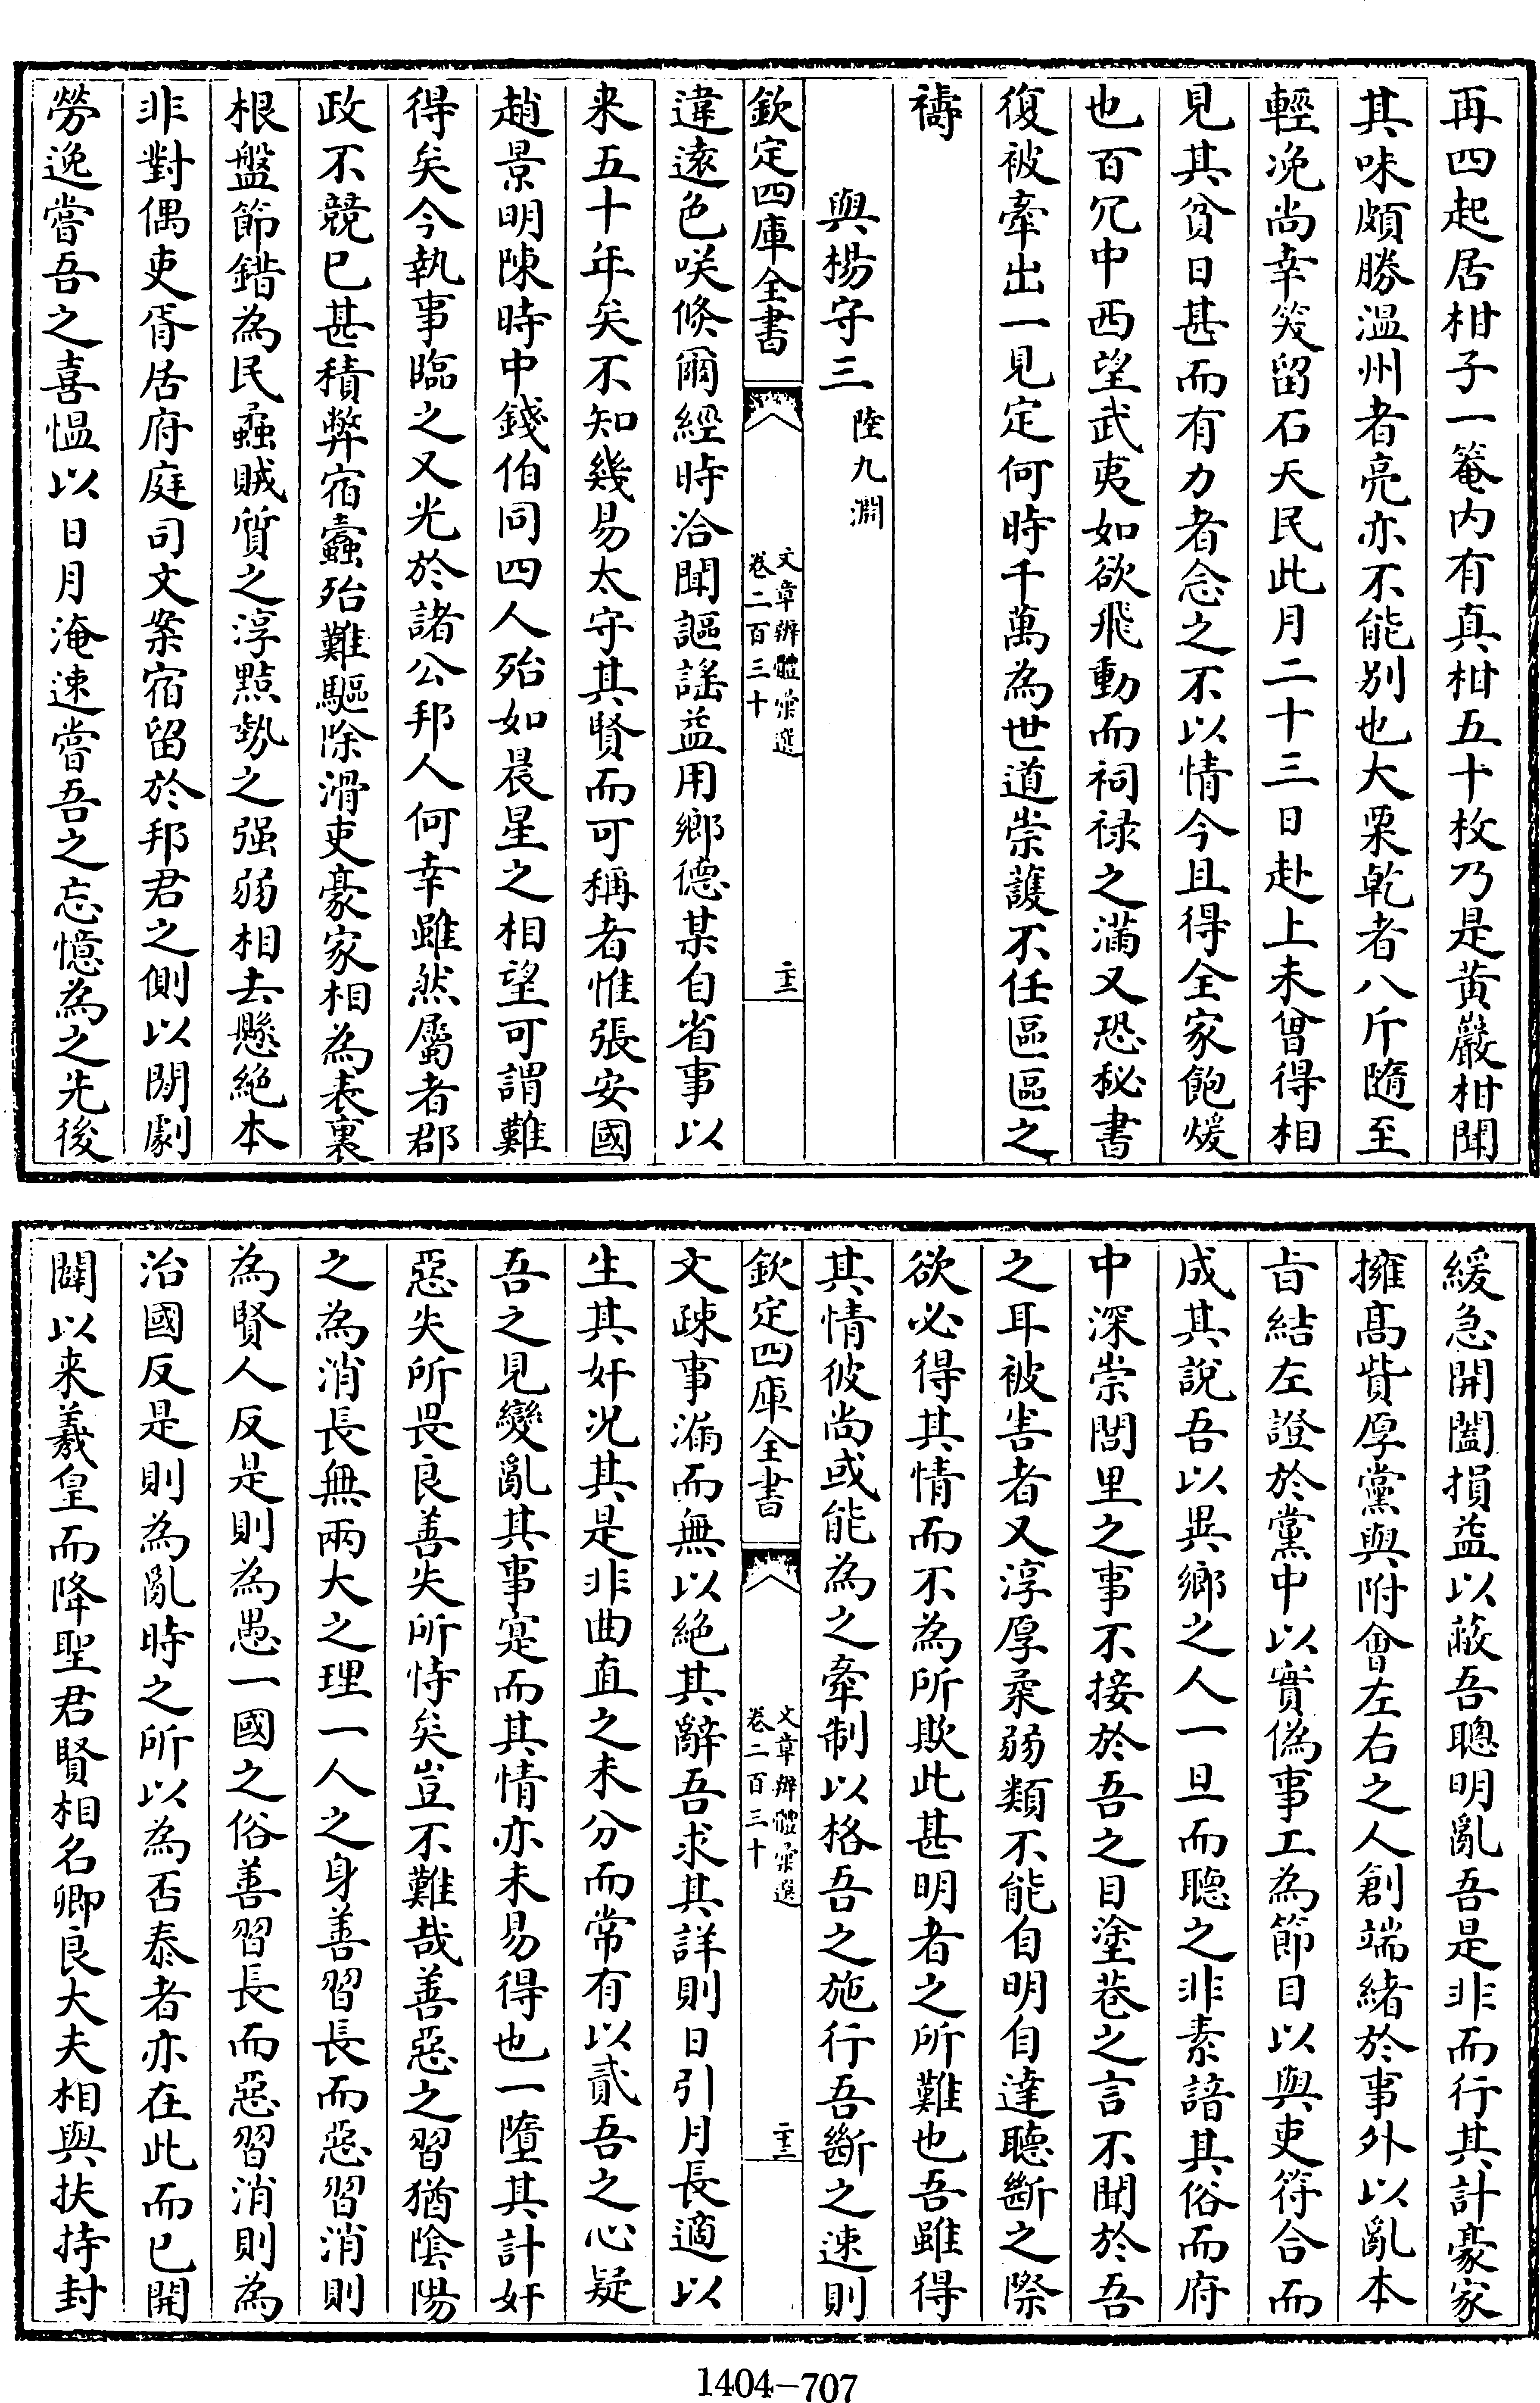 再四起居柑子一篭内有真柑五十枚乃是黄巖柑聞
其味頗勝温州者亮亦不能别也大栗乾者八斤隨至
輕浼尚幸笑留石天民此月二十三日赴上未曾得相
見其貧日甚而有力者念之不以情今且得全家飽煖
也百冗中西望武夷如欲飛動而祠禄之滿又恐秘書
復被牽出一見定何時千萬為世道崇護不任區區之
禱
與楊守三 陸九淵
欽定四庫全書
文章辨體彚選
卷二百三十
二十三
違遠色咲倐爾經時洽聞謳謡益用鄉德某自省事以
来五十年矣不知幾易太守其賢而可稱者惟張安國
趙景明陳時中錢伯同四人殆如晨星之相望可謂難
得矣今執事臨之又光於諸公邦人何幸雖然屬者郡
政不競已甚積弊宿蠧殆難驅除滑吏豪家相為表裏
根盤節錯為民蟊賊質之淳點勢之强弱相去懸絶本
非對偶吏胥居府庭司文案宿留於邦君之側以閒劇
勞逸嘗吾之喜愠以日月淹速嘗吾之忘憶為之先後
緩急開闔損益以蔽吾聰明亂吾是非而行其計豪家
擁髙貲厚黨與附㑹左右之人創端緒於事外以亂本
㫖結左證於黨中以實偽事工為節目以與吏符合而
成其說吾以異鄉之人一旦而聽之非素諳其俗而府
中深崇閭里之事不接於吾之目塗巷之言不聞於吾
之耳被害者又淳厚柔弱類不能自明自達聽斷之際
欲必得其情而不為所欺此甚明者之所難也吾雖得
其情彼尚或能為之牽制以格吾之施行吾斷之速則
欽定四庫全書
文章辨體彚選
卷二百三十
二十三
文疎事漏而無以絶其辭吾求其詳則日引月長適以
生其奸况其是非曲直之未分而常有以貳吾之心疑
吾之見變亂其事寔而其情亦未易得也一墮其計奸
惡失所畏良善失所恃矣豈不難哉善惡之習猶隂陽
之為消長無兩大之理一人之身善習長而惡習消則
為賢人反是則為愚一國之俗善習長而惡習消則為
治國反是則為亂時之所以為否泰者亦在此而已開
闢以来羲皇而降聖君賢相名卿良大夫相與扶持封
1404-707